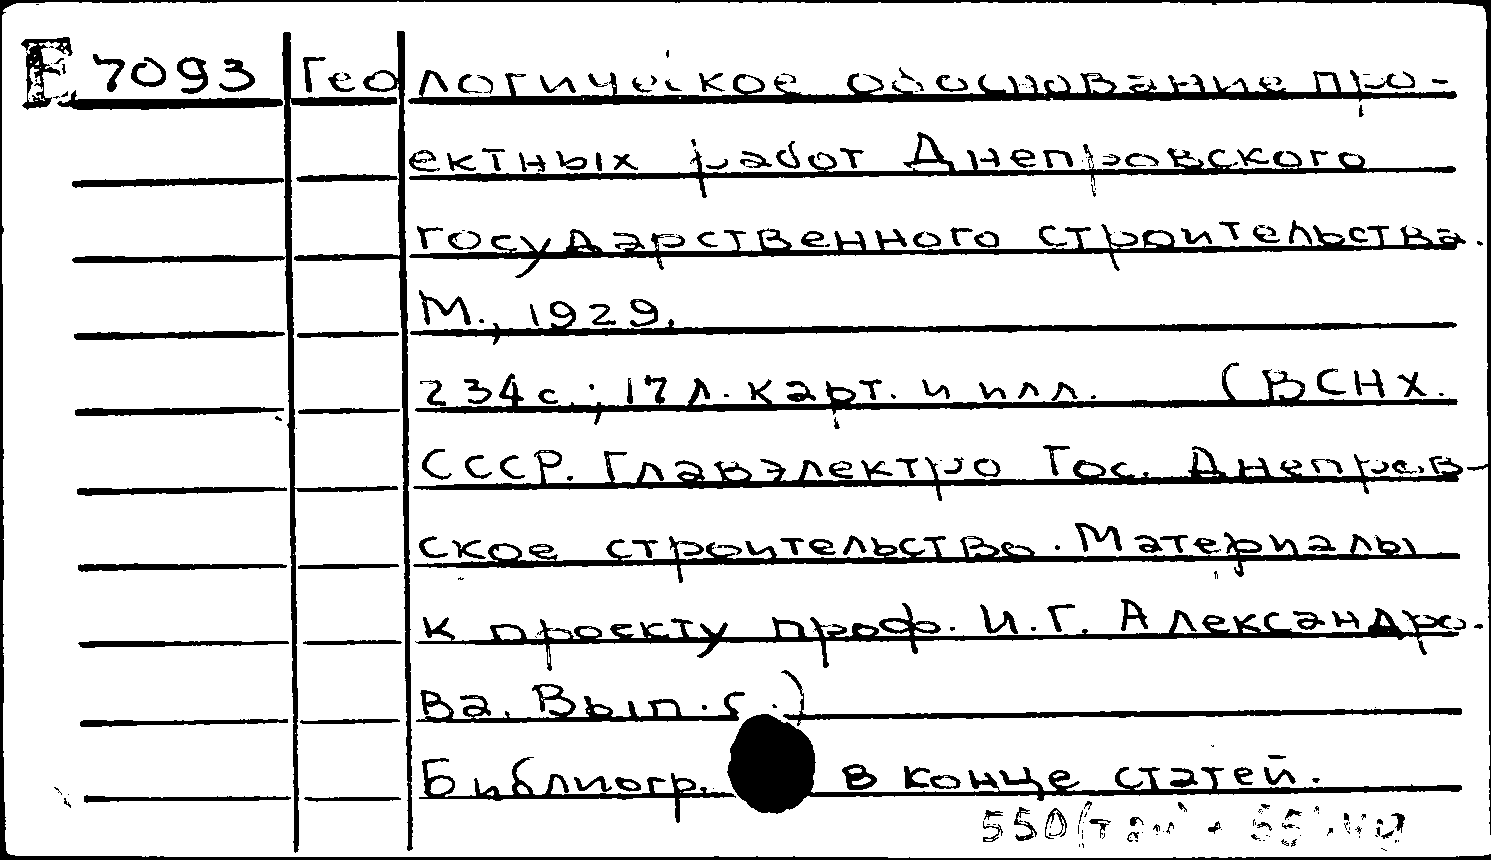 E 7093 Геологическое обоснование про-
ектных работ Днепровского
государственного строительства.
М., 1929.
234 с.; 17 л. карт. и илл. (ВСНХ.
СССР. Главэлектро Гос. Днепров-
ское строительство. Материалы
к проекту проф. И.Г. Александро-
ва. Вып. 5.)
Библиогр. в конце статей.